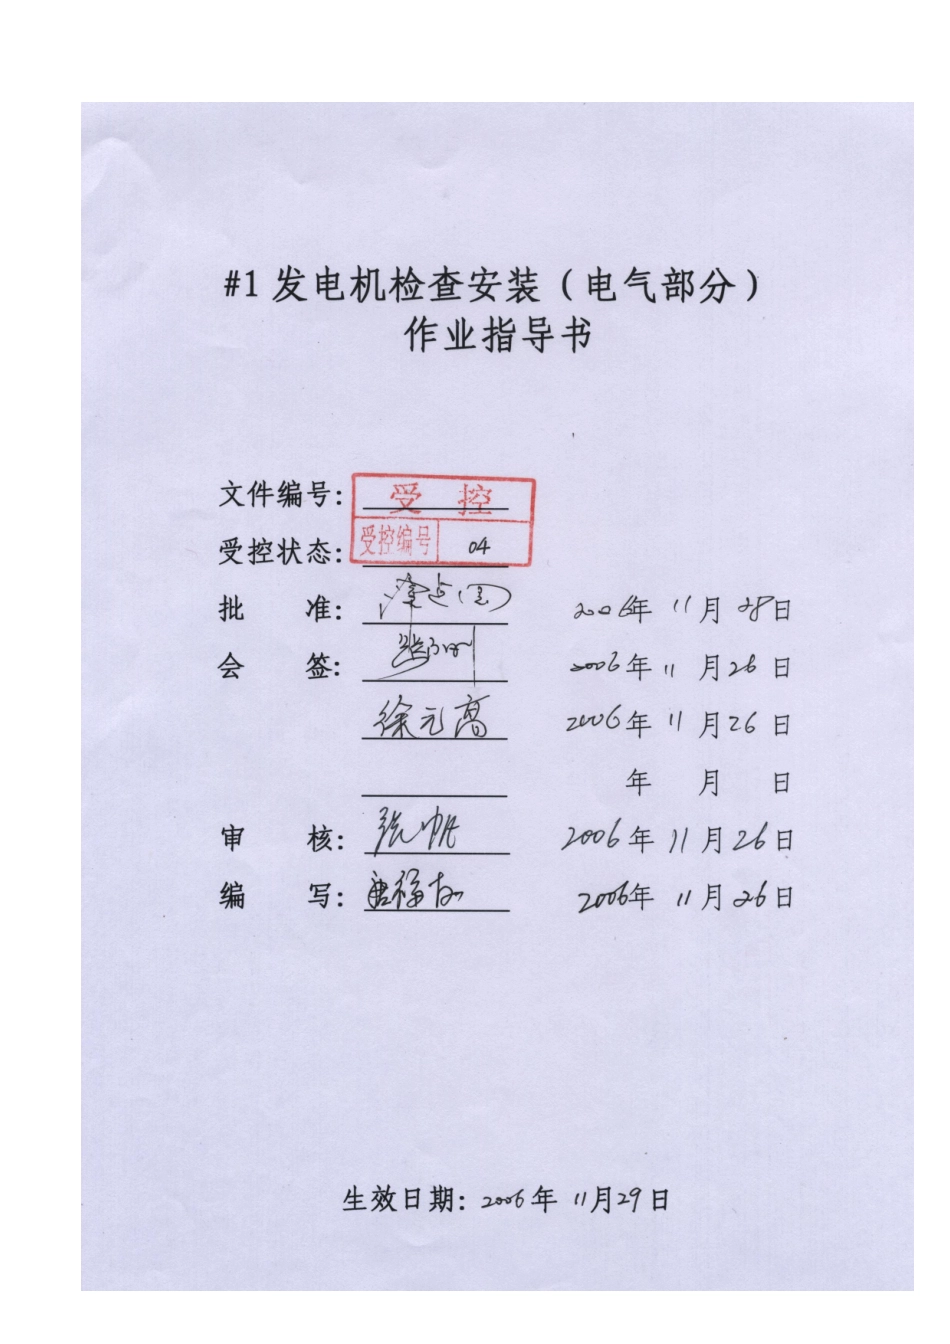 #1 发电机检查安装（电气部分）
作业指导书
文件编号：
受控
受控状态：
受控编号 04
批 准： 2006年 11月 28日
会 签： 2006年 11月 26日
徐元高 2006年 11月 26日
年 月 日
审 核：张帆 2006年 11月 26日
编 写： 2006年 11月 26日
生效日期：2006年 11月29日